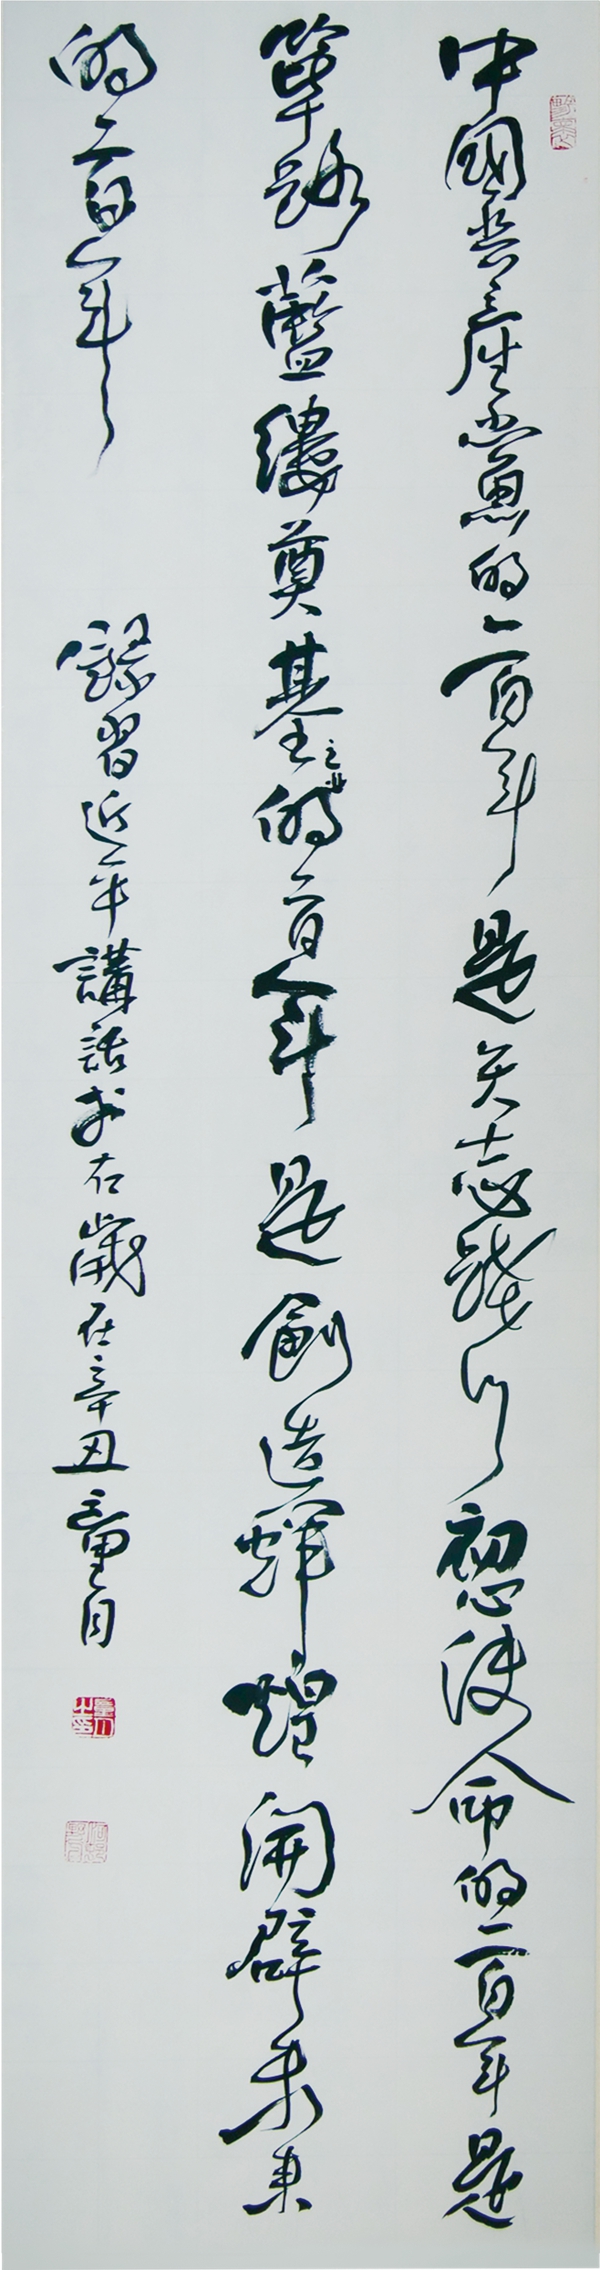 中國共產黨的一百年是矢志踐行初心使命的一百年是
篳路藍縷奠基立業的一百年是創造輝煌開辟未來
的一百年
錄習近平講話於右歲在辛丑